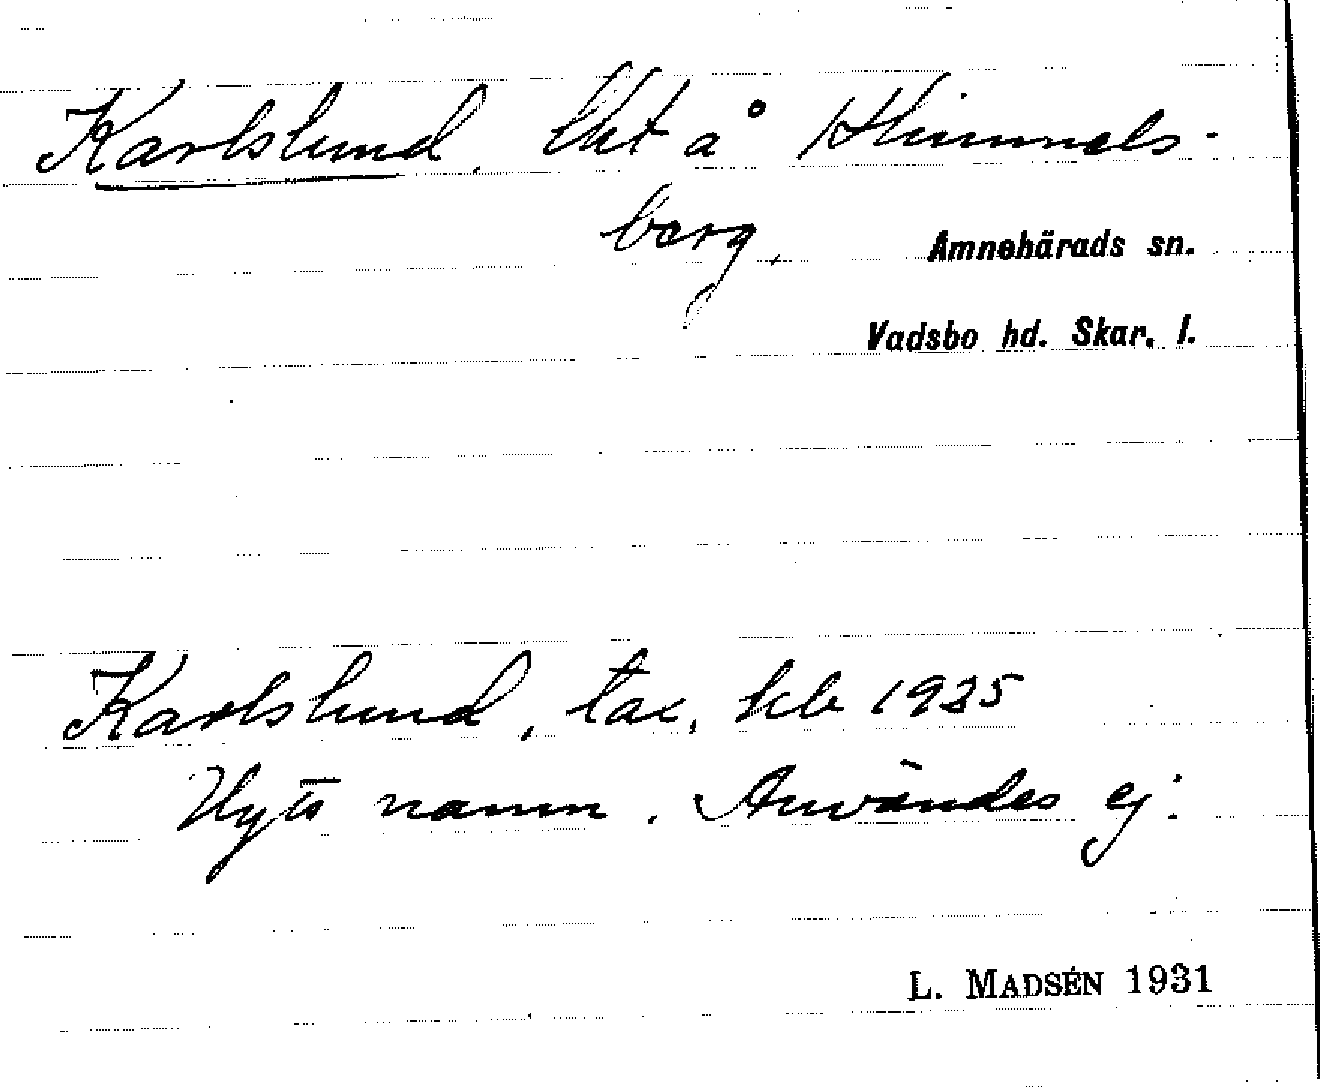 Karlslund, lht å Himmels-
berg,
Amnehärads sn.
Vadsbo hd. Skar. l.
Karlslund, tax, hlb 1925
Nytt namn. Användes ej.
L. MADSÉN 1931